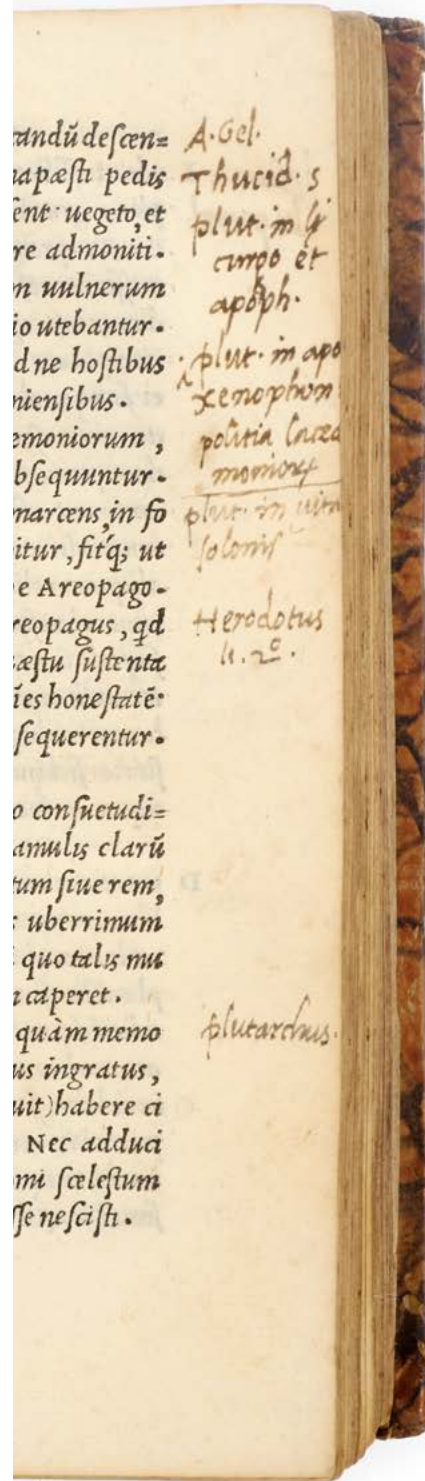 tandũ descen=
napæsti pedis
ent uegeto, et
re admoniti.
m uulnerum
io utebantur.
d ne hostibus
niensibus.
emoniorum,
bsequuntur.
marcens, in fo
itur, fitq́; ut
e Areopago.
reopagus, qd
æstu sustenta
ĩes honestatẽ
sequerentur.
o consuetudi=
amulis clarũ
tum siue rem,
uberrimum
quo talis mu
caperet.
quàm memo
us ingratus,
uit) habere ci
Nec adduci
mi scelestum
sse nescisti.
A. Gel.
Thucid. 5
plut. in ly
curgo et
apoph.
plut. in apo
Xenophon
politia laced
moniorꝝ
plut. in vita
solonis
Herodotus
li. 2º.
plutarchus.